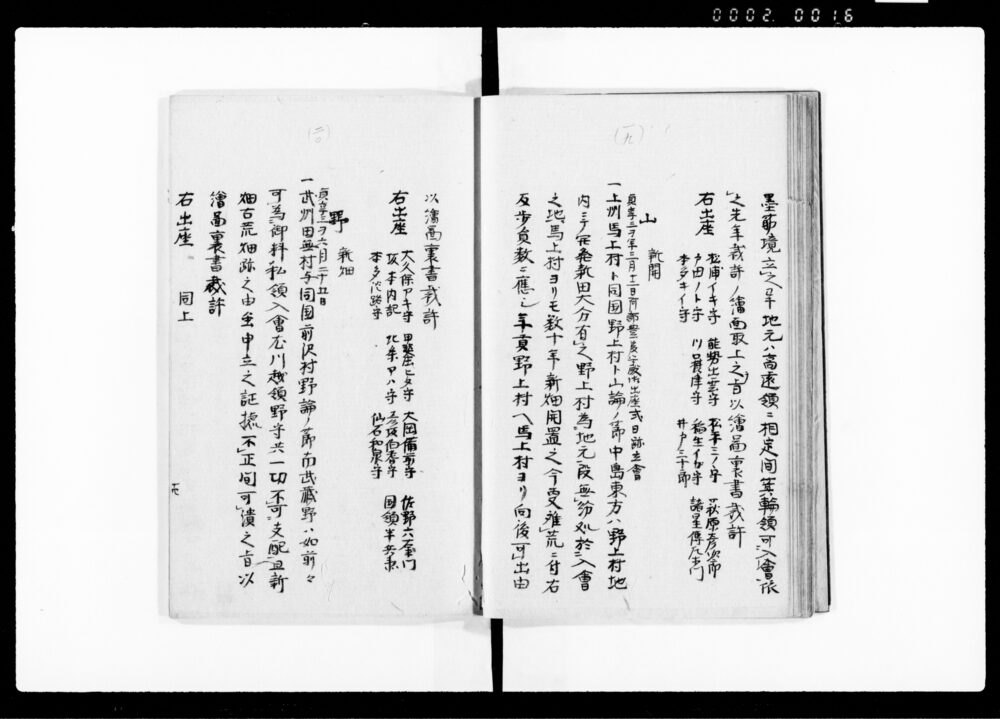 0002 0016
(一九)
墨筋境立之上ハ地元ハ高遠領ニ相定間箕輪領可入會派
之先年裁許ノ繪面取上之旨以繪圖裏書裁許
右出座
松浦イキ守 能勢出雲守 松平ミノ守 萩原彦次郎
戸田ノト守 川口摂津守 稲生イカ守 諸星傳左衛門
本多キイ守 井戸三十郎
山 新開
一上州馬上村ト同国野上村ト山論ノ節中島東方ハ野上村地
内ニテ発新田大分有之野上村為地元段無紛処於入會
之地馬上村ヨリモ数十年新畑開置之今更雖荒ニ付右
反歩員数ニ應シ年貢野上村ヘ馬上村ヨリ向後可出由
(二〇)
以繪圖裏書裁許
右出座
大久保アキ守 甲斐庄ヒタ守 大岡備前守 佐野六右衛門
坂本内記 北条アハ守 彦坂伯耆守 国領半兵衛
本多淡路守 仙石和泉守
野 新畑
貞享三 六月二十五日
一武州田無村与同国前沢村野論ノ節南武蔵野ハ如前々
可為御料私領入會 川越領野守共一切不可支配且新
畑古荒畑跡之由雖申立之証拠不正間可潰之旨以
繪圖裏書裁許
右出座 同上